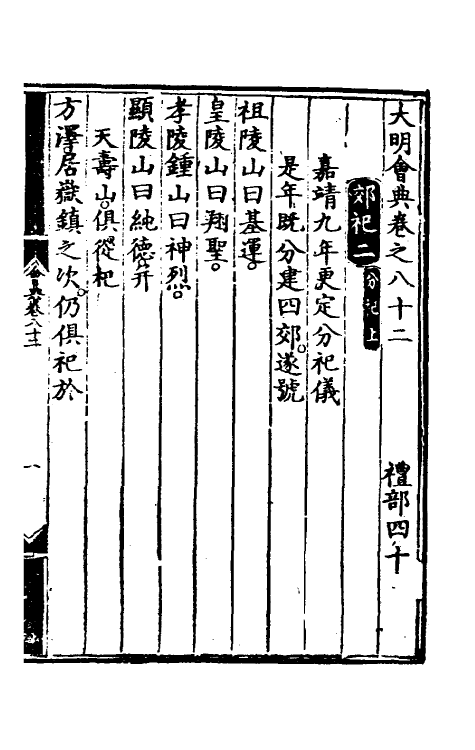 大明會典卷之八十二 禮部四十
郊祀二 分祀上
嘉靖九年更定分祀儀
是年既分建四郊。遂號
祖陵山曰基運。
皇陵山曰翔聖。
孝陵鍾山曰神烈。
顯陵山曰純德。并
天壽山。俱從祀
方澤居嶽鎮之次。仍俱祀於
會典卷八十二
一